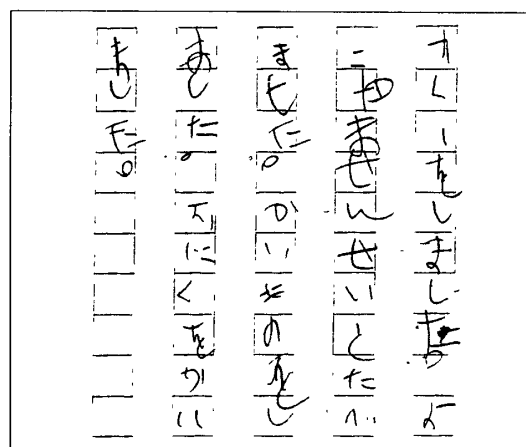 オくーをしました。よ
こやませんせいとたべ
ました。かいものをし
ました。おにくをかい
ました。